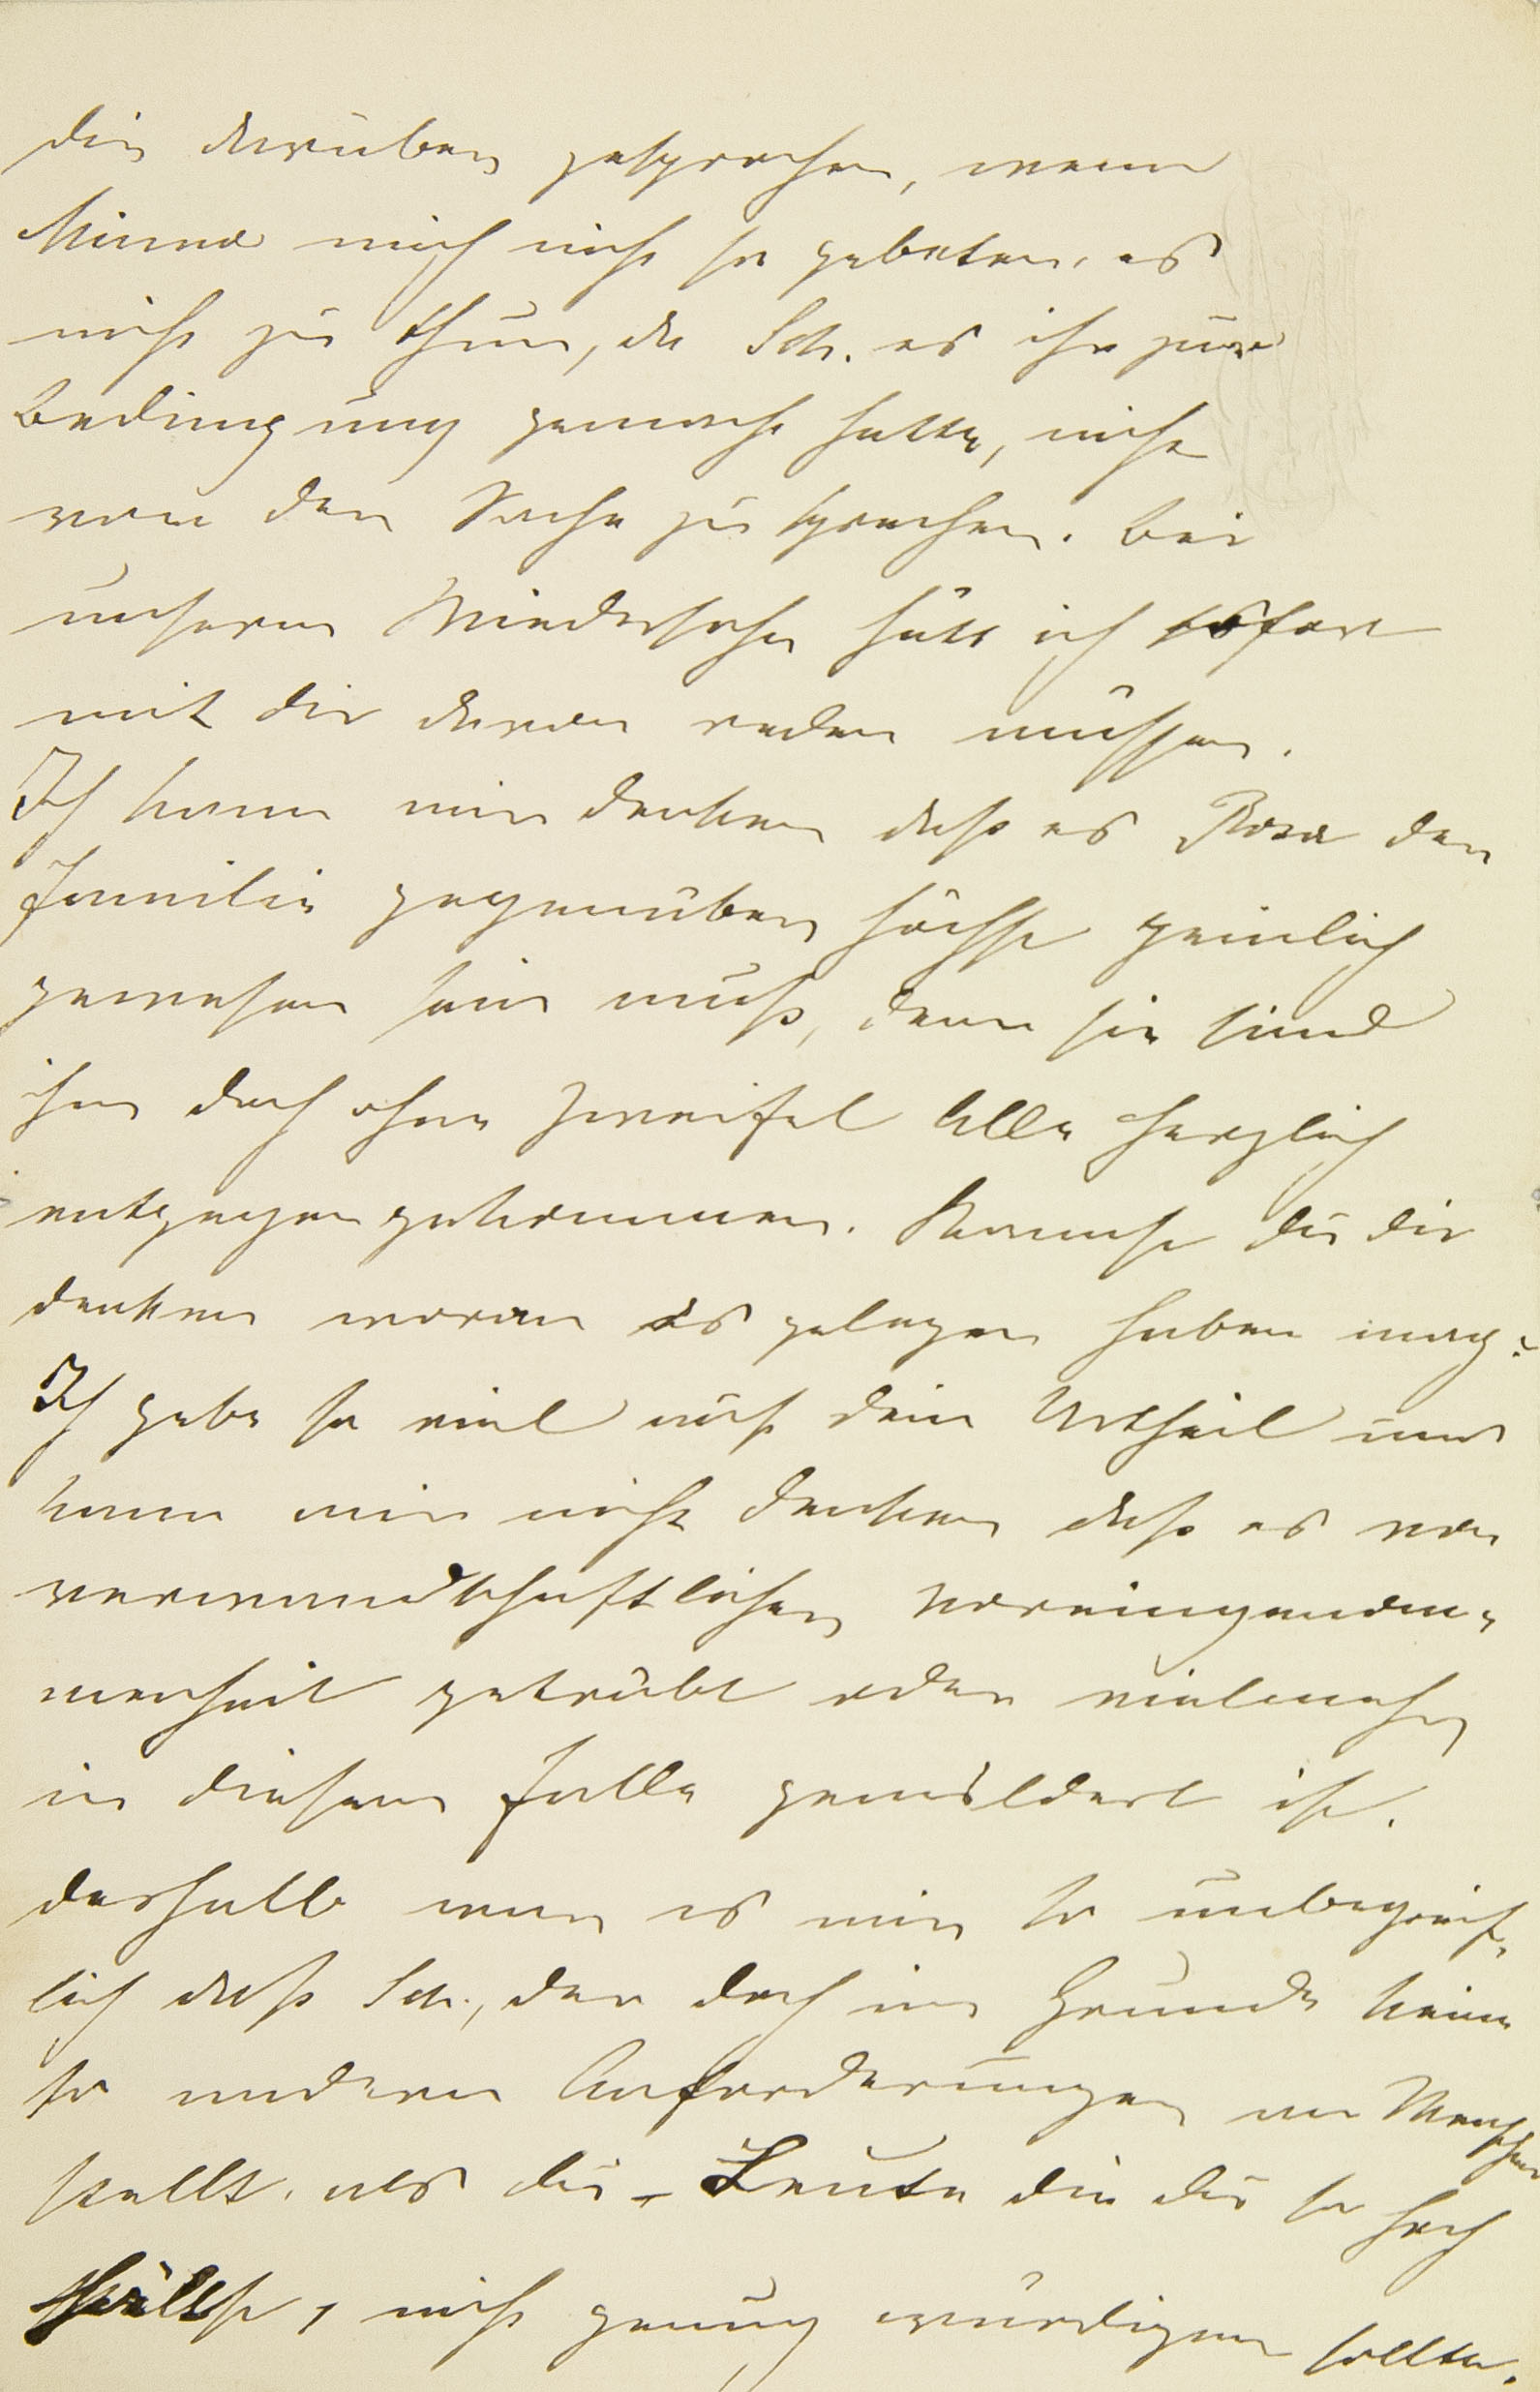 dir darüber gesprochen, wenn
Minna mich nicht so gebeten, es
nicht zu thun, da Sch. es ihr zur
Bedingung gemacht hatte, nicht
von der Sache zu sprechen. Bei
unserm Wiedersehn hätt ich
mit dir davon reden müssen.
Ich kann mir denken daß es Rosa der
Familie gegenüber höchst peinlich
gewesen sein muß, denn sie sind
ihm doch ohne Zweifel Alle herzlich
entgegengekommen. Kannst du dir
denken woran es gelegen haben mag?
Ich gebe so viel auf dein Urtheil und
kann mir nicht denken daß es von
verwandtschaftlicher Voreingenom-
menheit getrübt oder vielmehr
in diesem Falle gemildert ist.
deshalb war es mir so unbegreif-
lich daß Sch., der doch im Grunde keine
so andern Anforderungen an Menschen
stellt, als du - Leute die du so hoch
hältst, nicht genug würdigen sollte.